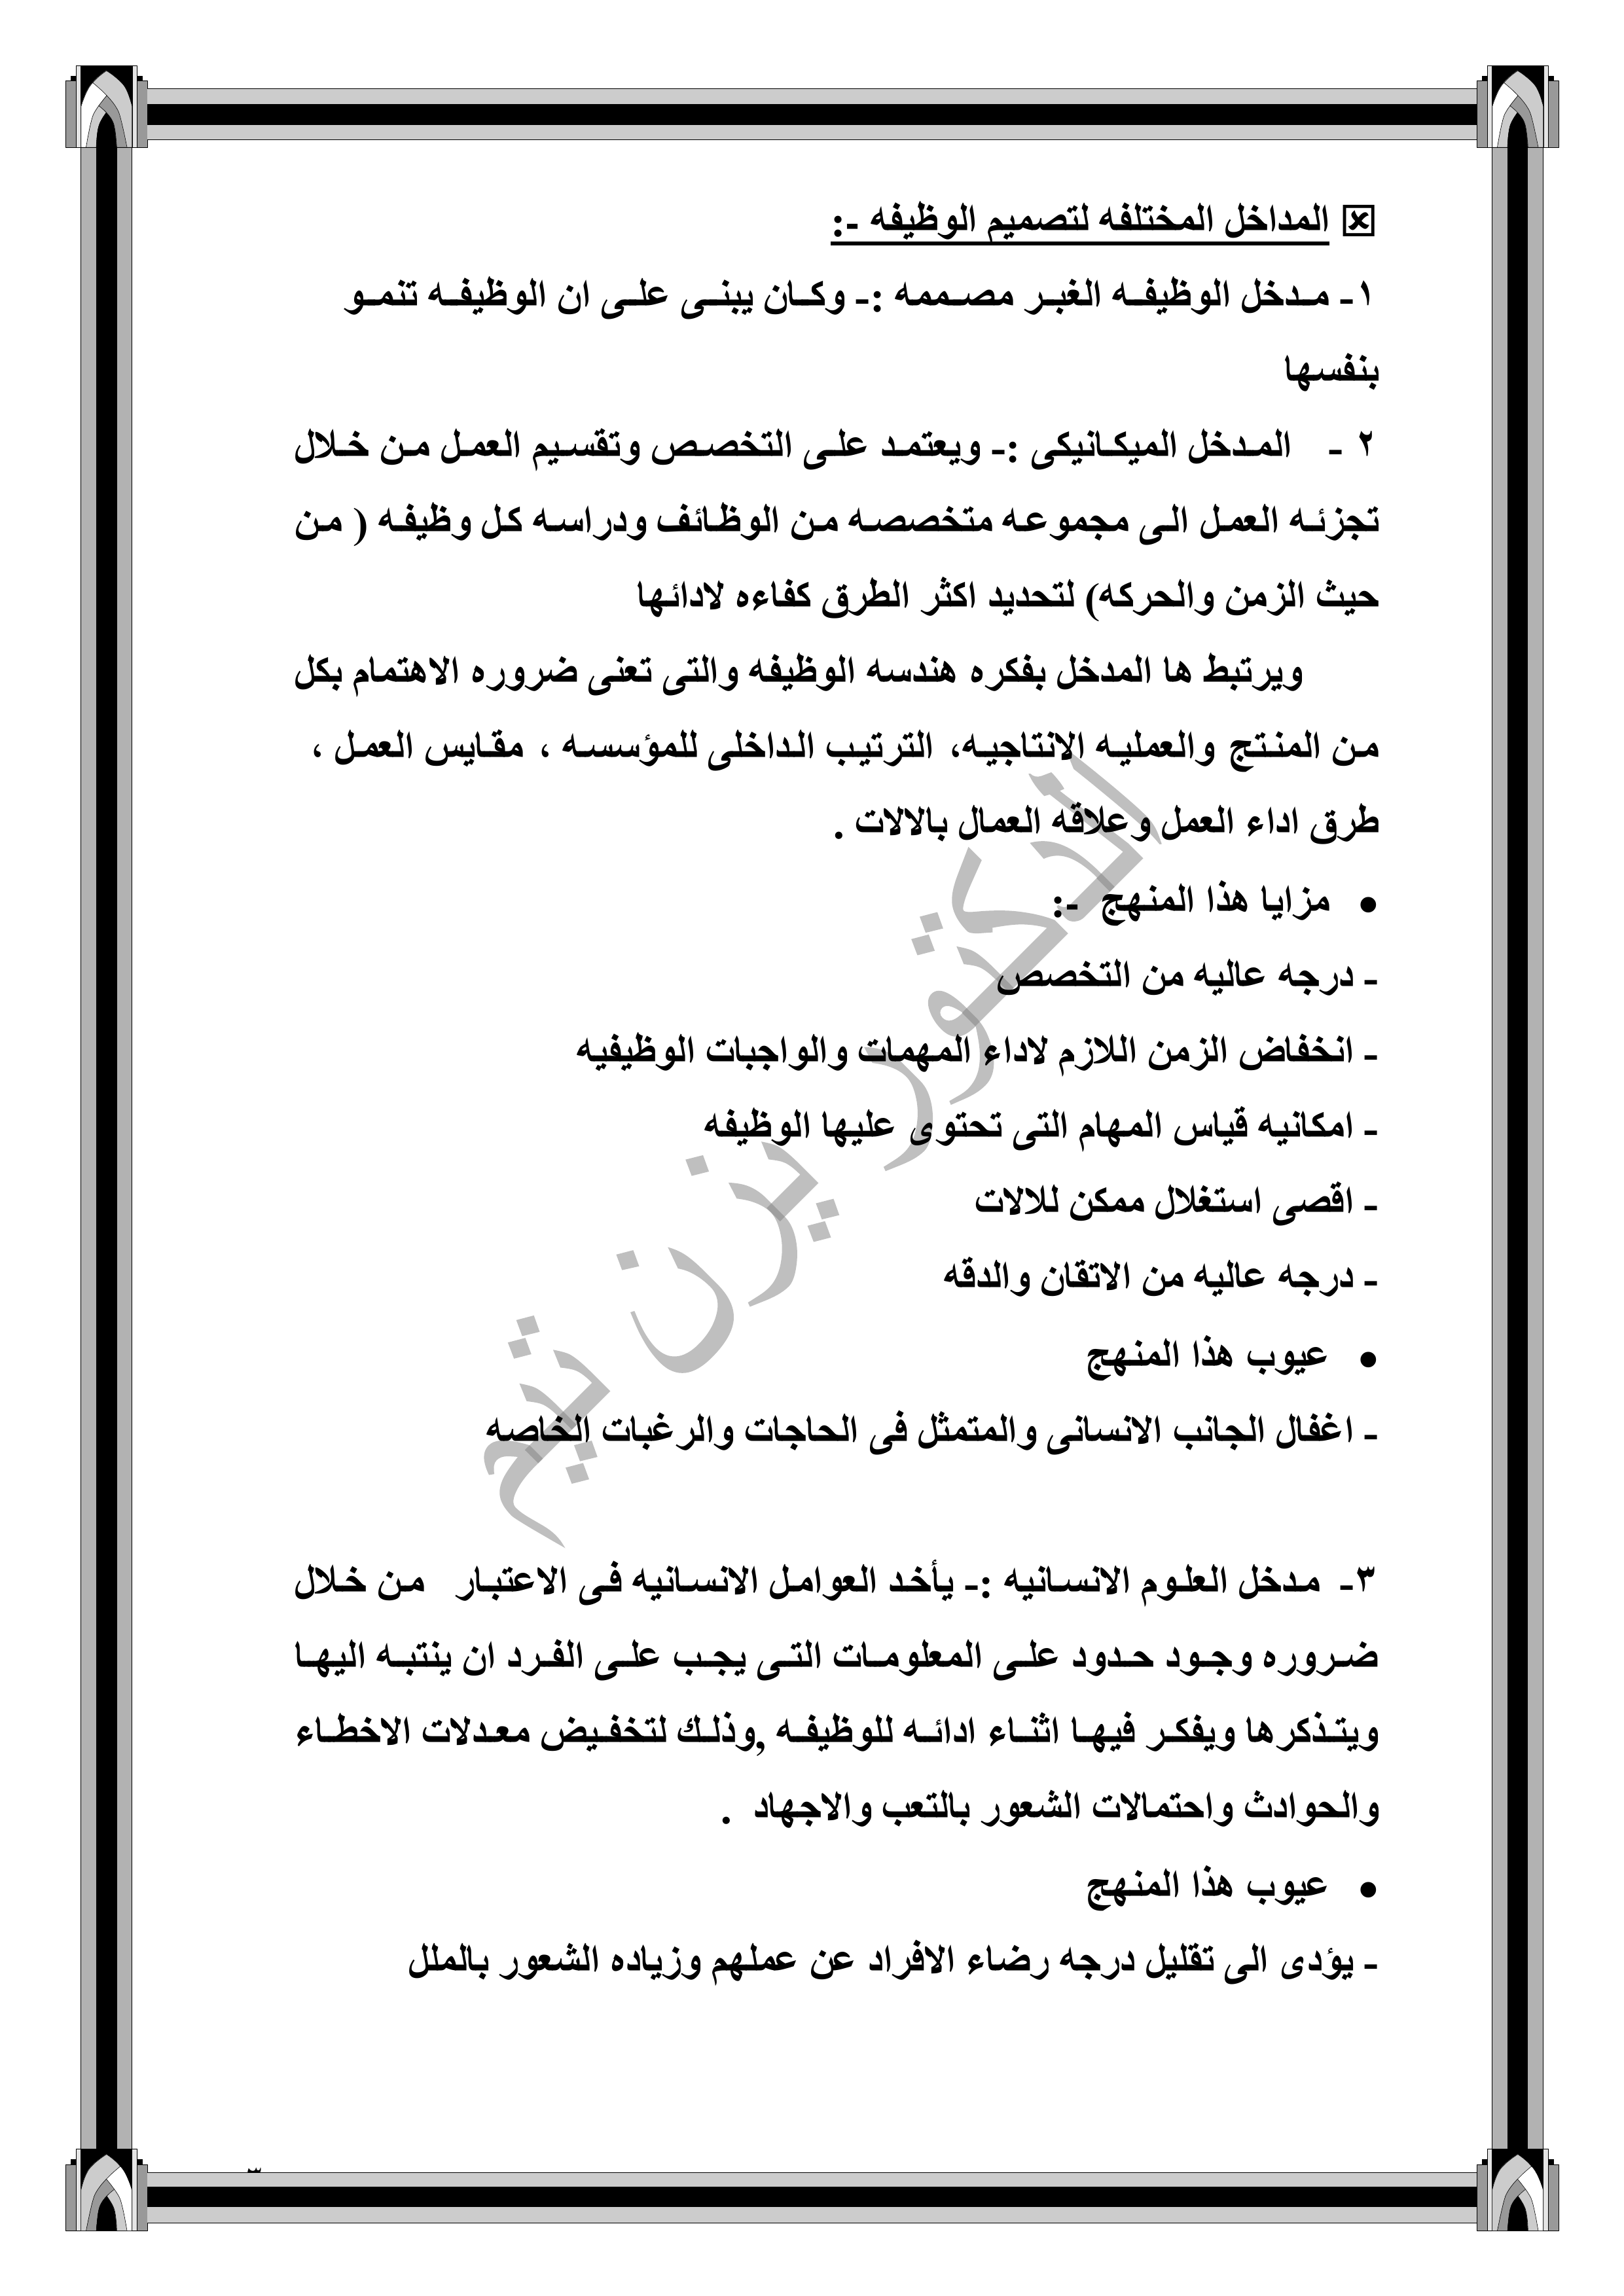 المداخل المختلفه لتصميم الوظيفه -:
١- مدخل الوظيفه الغبر مصممه :- وكان يبنى على ان الوظيفه تنمو
بنفسها
٢ - المدخل الميكانيكى :- ويعتمد على التخصص وتقسيم العمل من خلال
تجزئه العمل الى مجموعه متخصصه من الوظائف ودراسه كل وظيفه ( من
حيث الزمن والحركه) لتحديد اكثر الطرق كفاءه لادائها
ويرتبط ها المدخل بفكره هندسه الوظيفه والتى تعنى ضروره الاهتمام بكل
من المنتج والعمليه الانتاجيه، الترتيب الداخلى للمؤسسه ، مقايس العمل ،
طرق اداء العمل وعلاقه العمال بالالات .
• مزايا هذا المنهج -:
- درجه عاليه من التخصص
- انخفاض الزمن اللازم لاداء المهمات والواجبات الوظيفيه
- امكانيه قياس المهام التى تحتوى عليها الوظيفه
- اقصى استغلال ممكن للالات
- درجه عاليه من الاتقان والدقه
• عيوب هذا المنهج
- اغفال الجانب الانسانى والمتمثل فى الحاجات والرغبات الخاصه
٣- مدخل العلوم الانسانيه :- يأخد العوامل الانسانيه فى الاعتبار من خلال
ضروره وجود حدود على المعلومات التى يجب على الفرد ان ينتبه اليها
ويتذكرها ويفكر فيها اثناء ادائه للوظيفه ,وذلك لتخفيض معدلات الاخطاء
والحوادث واحتمالات الشعور بالتعب والاجهاد .
• عيوب هذا المنهج
- يؤدى الى تقليل درجه رضاء الافراد عن عملهم وزياده الشعور بالملل
الدكتور يزن تيم